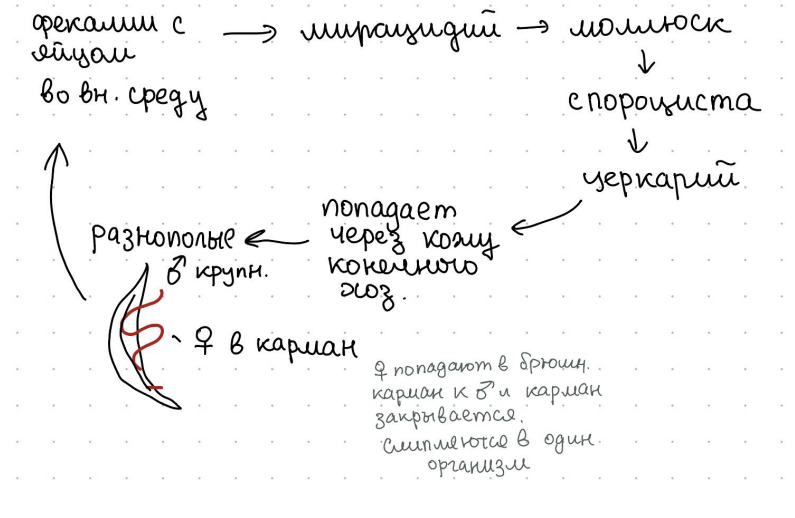 фекалии с
яйцом
во вн. среду
мирацидий
моллюск
спороциста
церкарий
попадает
через кожу
конечного
хоз.
разнополые
♂ крупн.
♀ в карман
♀ попадают в брюшн.
карман к ♂ и карман
закрывается.
слипляются в один
организм